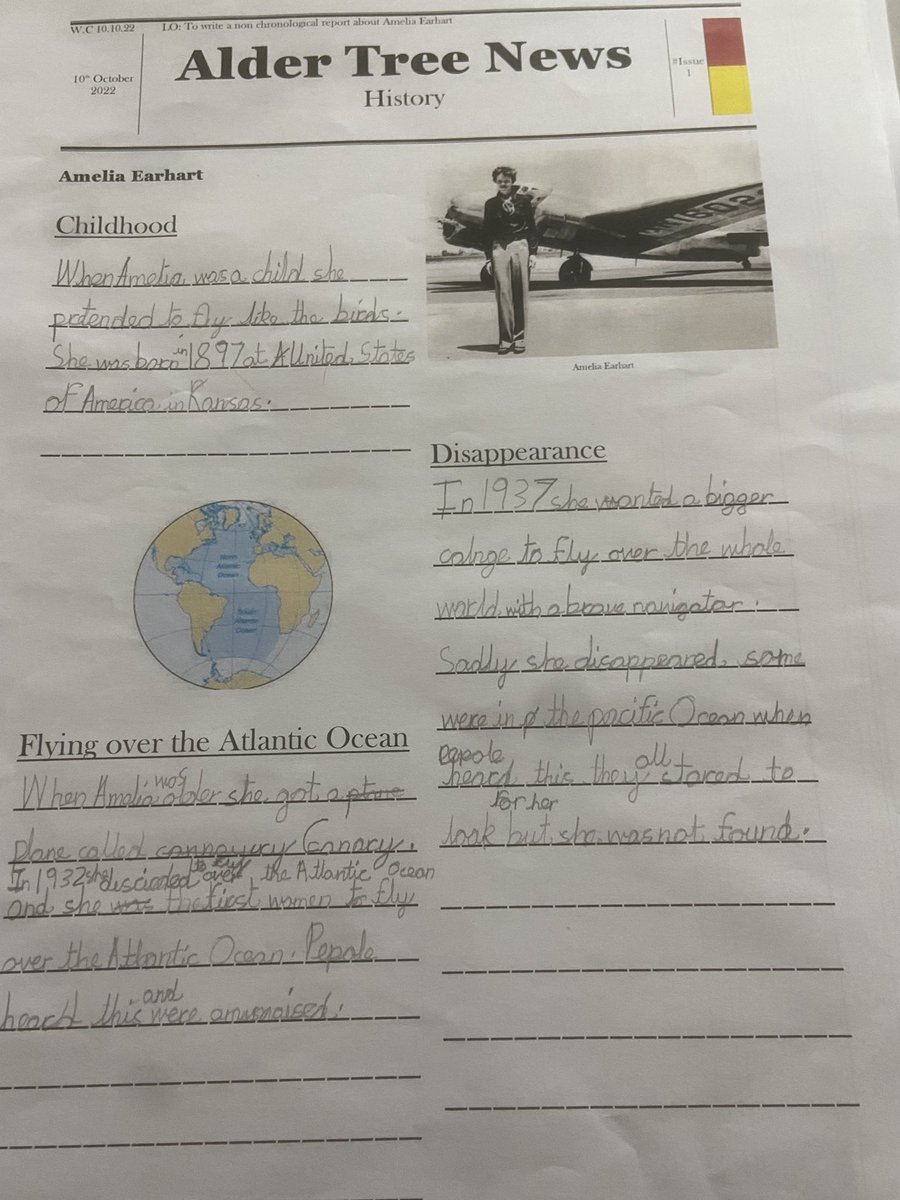 W.C 10.10.22
LO: To write a non chronological report about Amelia Earhart
10th October
2022
Alder Tree News
History
#Issue
1
Amelia Earhart
Childhood
When Amelia was a child she
pretended to fly like the birds.
She was born in 1897 at A United States
of America in Kansas.
North
Atlantic
Ocean
South
Atlantic
Ocean
Flying over the Atlantic Ocean
When Amelia was older she got a
plane called cannayury Canary.
In 1932 she descieded to fly over the Atlantic Ocean
and she was the first women to fly
over the Atlantic Ocean. Pepale
heard this and were amusnaised.
Amelia Earhart
Disappearance
In 1937 she wanted a bigger
calnge to fly over the whole
world with a brave navigator.
Sadly she disappeared, some
were in the pacific Ocean when
pepole
heard this they all stared to
look for her but she was not found.